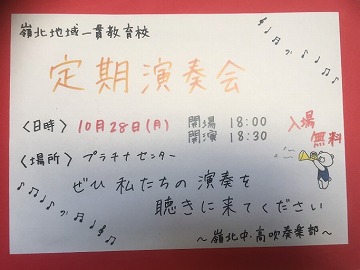 嶺北地域一貫教育校
定期演奏会
〈日時〉 10月28日(月) 開場 18:00 入場
開演 18:30 無料
〈場所〉 プラチナセンター
ぜひ 私たちの 演奏を
聴きに来てください
～嶺北中・高吹奏楽部～